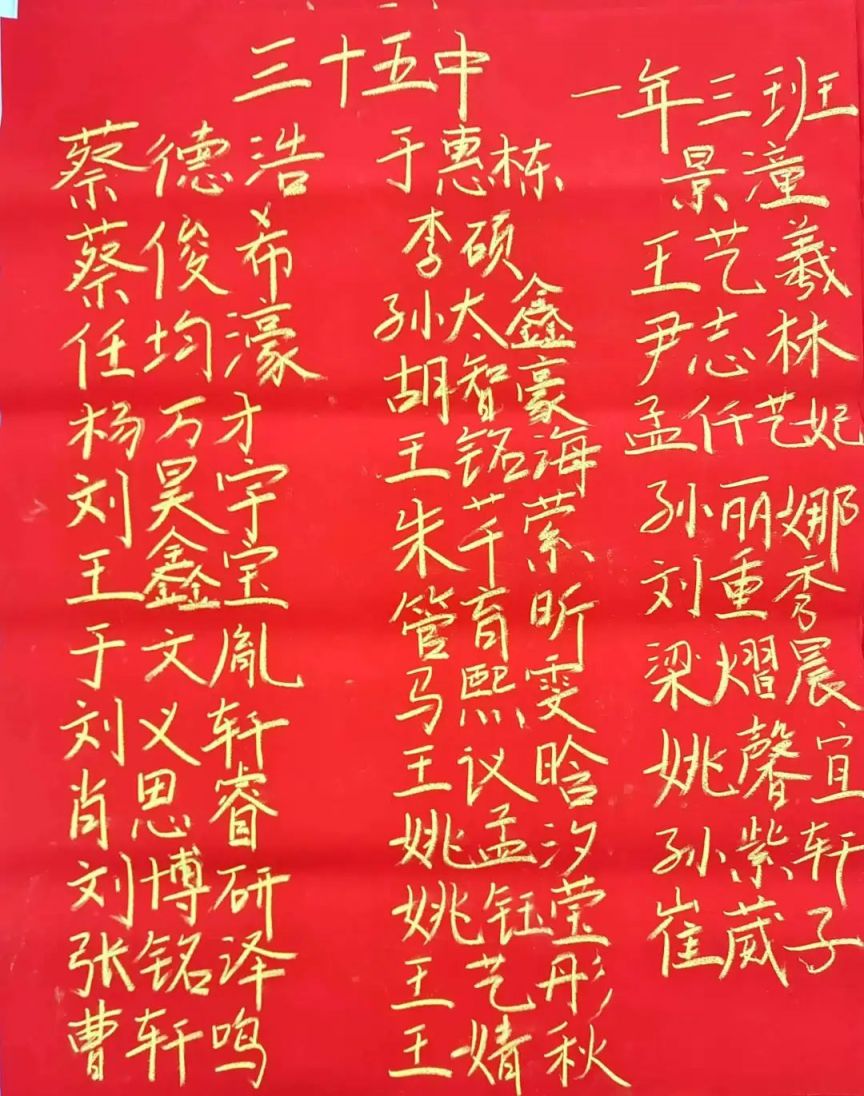 三十五中
一年三班
蔡德浩
蔡俊希
任均濠
杨万才
刘昊宇
王鑫宝
于文胤
刘义轩
肖思睿
刘博研
张铭泽
曹轩鸣
于惠栋
李硕
孙太鑫
胡智豪
王铭海
朱芊萦
管育昕
马熙雯
王议晗
姚孟汐
姚钰莹
王艺彤
王婧秋
景潼
王艺羲
尹志林
孟仟艺妃
孙丽娜
刘重秀
梁熠晨
姚馨宜
孙紫轩
崔葳子